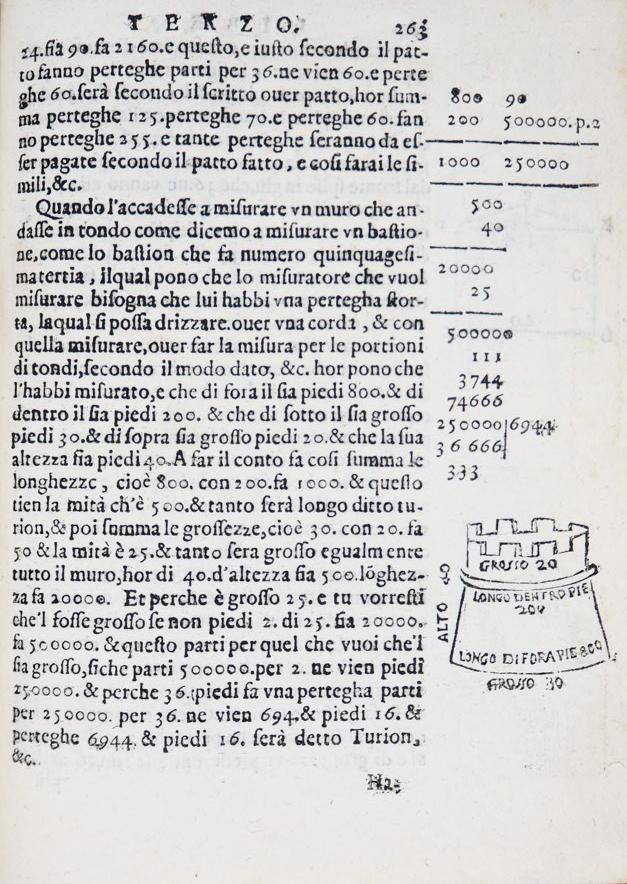 TERZO. 263
24.ſia 90.fa 2160.e queſto,e iuſto ſecondo il pat-
to fanno perteghe parti per 36.ne vien 60.e perte
ghe 60.ſerà ſecondo il ſcritto ouer patto,hor ſum-
ma perteghe 125.perteghe 70.e perteghe 60.fan
no perteghe 255.e tante perteghe ſeranno da eſ-
ſer pagate ſecondo il patto fatto, e coſi farai le ſi-
mili,&c.
Quando l'accadeſſe a miſurare vn muro che an-
daſſe in tondo come dicemo a miſurare vn baſtio-
ne,come lo baſtion che fa numero quinquageſi-
matertia, ilqual pono che lo miſuratore che vuol
miſurare biſogna che lui habbi vna pertegha ſtor-
ta, laqual ſi poſſa drizzare.ouer vna corda, & con
quella miſurare,ouer far la miſura per le portioni
di tondi,ſecondo il modo dato, &c. hor pono che
l'habbi miſurato,e che di fora il ſia piedi 800.& di
dentro il ſia piedi 200. & che di ſotto il ſia groſſo
piedi 30.& di ſopra ſia groſſo piedi 20.& che la ſua
altezza ſia piedi 40.A far il conto fa coſi ſumma le
longhezze, cioè 800. con 200.fa 1000. & queſto
tien la mità ch'è 500.& tanto ſerà longo ditto tu-
rion,& poi ſumma le groſſezze,cioè 30. con 20. fa
50 & la mità è 25.& tanto ſera groſſo egualm ente
tutto il muro,hor di 40.d'altezza ſia 500.lõghez-
za fa 20000. Et perche è groſſo 25. e tu vorreſti
che'l foſſe groſſo ſe non piedi 2. di 25. ſia 20000.
fa 500000. & queſto parti per quel che vuoi che'l
ſia groſſo,ſiche parti 500000.per 2. ne vien piedi
250000. & perche 36.piedi fa vna pertegha parti
per 250000. per 36. ne vien 694.& piedi 16. &
perteghe 6944. & piedi 16. ſerà detto Turion,
&c.
800 90
200 500000.p.2
1000 250000
500
40
20000
25
500000
111
3744
74666
250000|6944
36666
333
GROSSO 20
LONGO DENTRO PIE
200
ALTO 40
LONGO DI FORA PIE 800
GROSSO 30